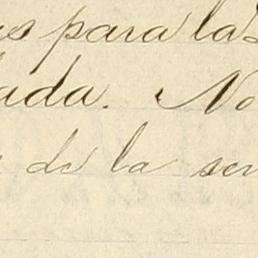 para la
ada. No
de la sen